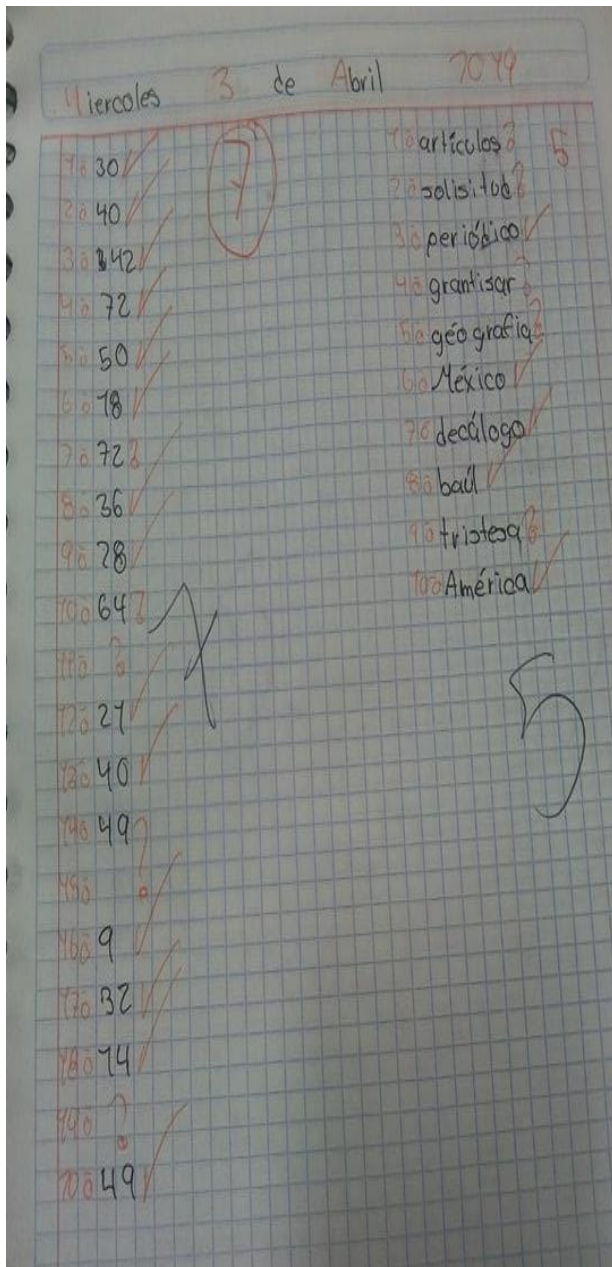 Miercoles 3 de Abril 2019
7
1.- 30
2.- 40
3.- 342
4.- 72
5.- 50
6.- 18
7.- 72 ?
8.- 36
9.- 28
10.- 64 ?
11.- ?
12.- 21
13.- 40
14.- 49 ?
15.-
16.- 9
17.- 32
18.- 14
19.- ?
20.- 49
5
1.- artículos ?
2.- solisitud ?
3.- periódico
4.- grantisar ?
5.- géografia ?
6.- México
7.- decálogo
8.- baúl
9.- tristesa ?
10.- América
5